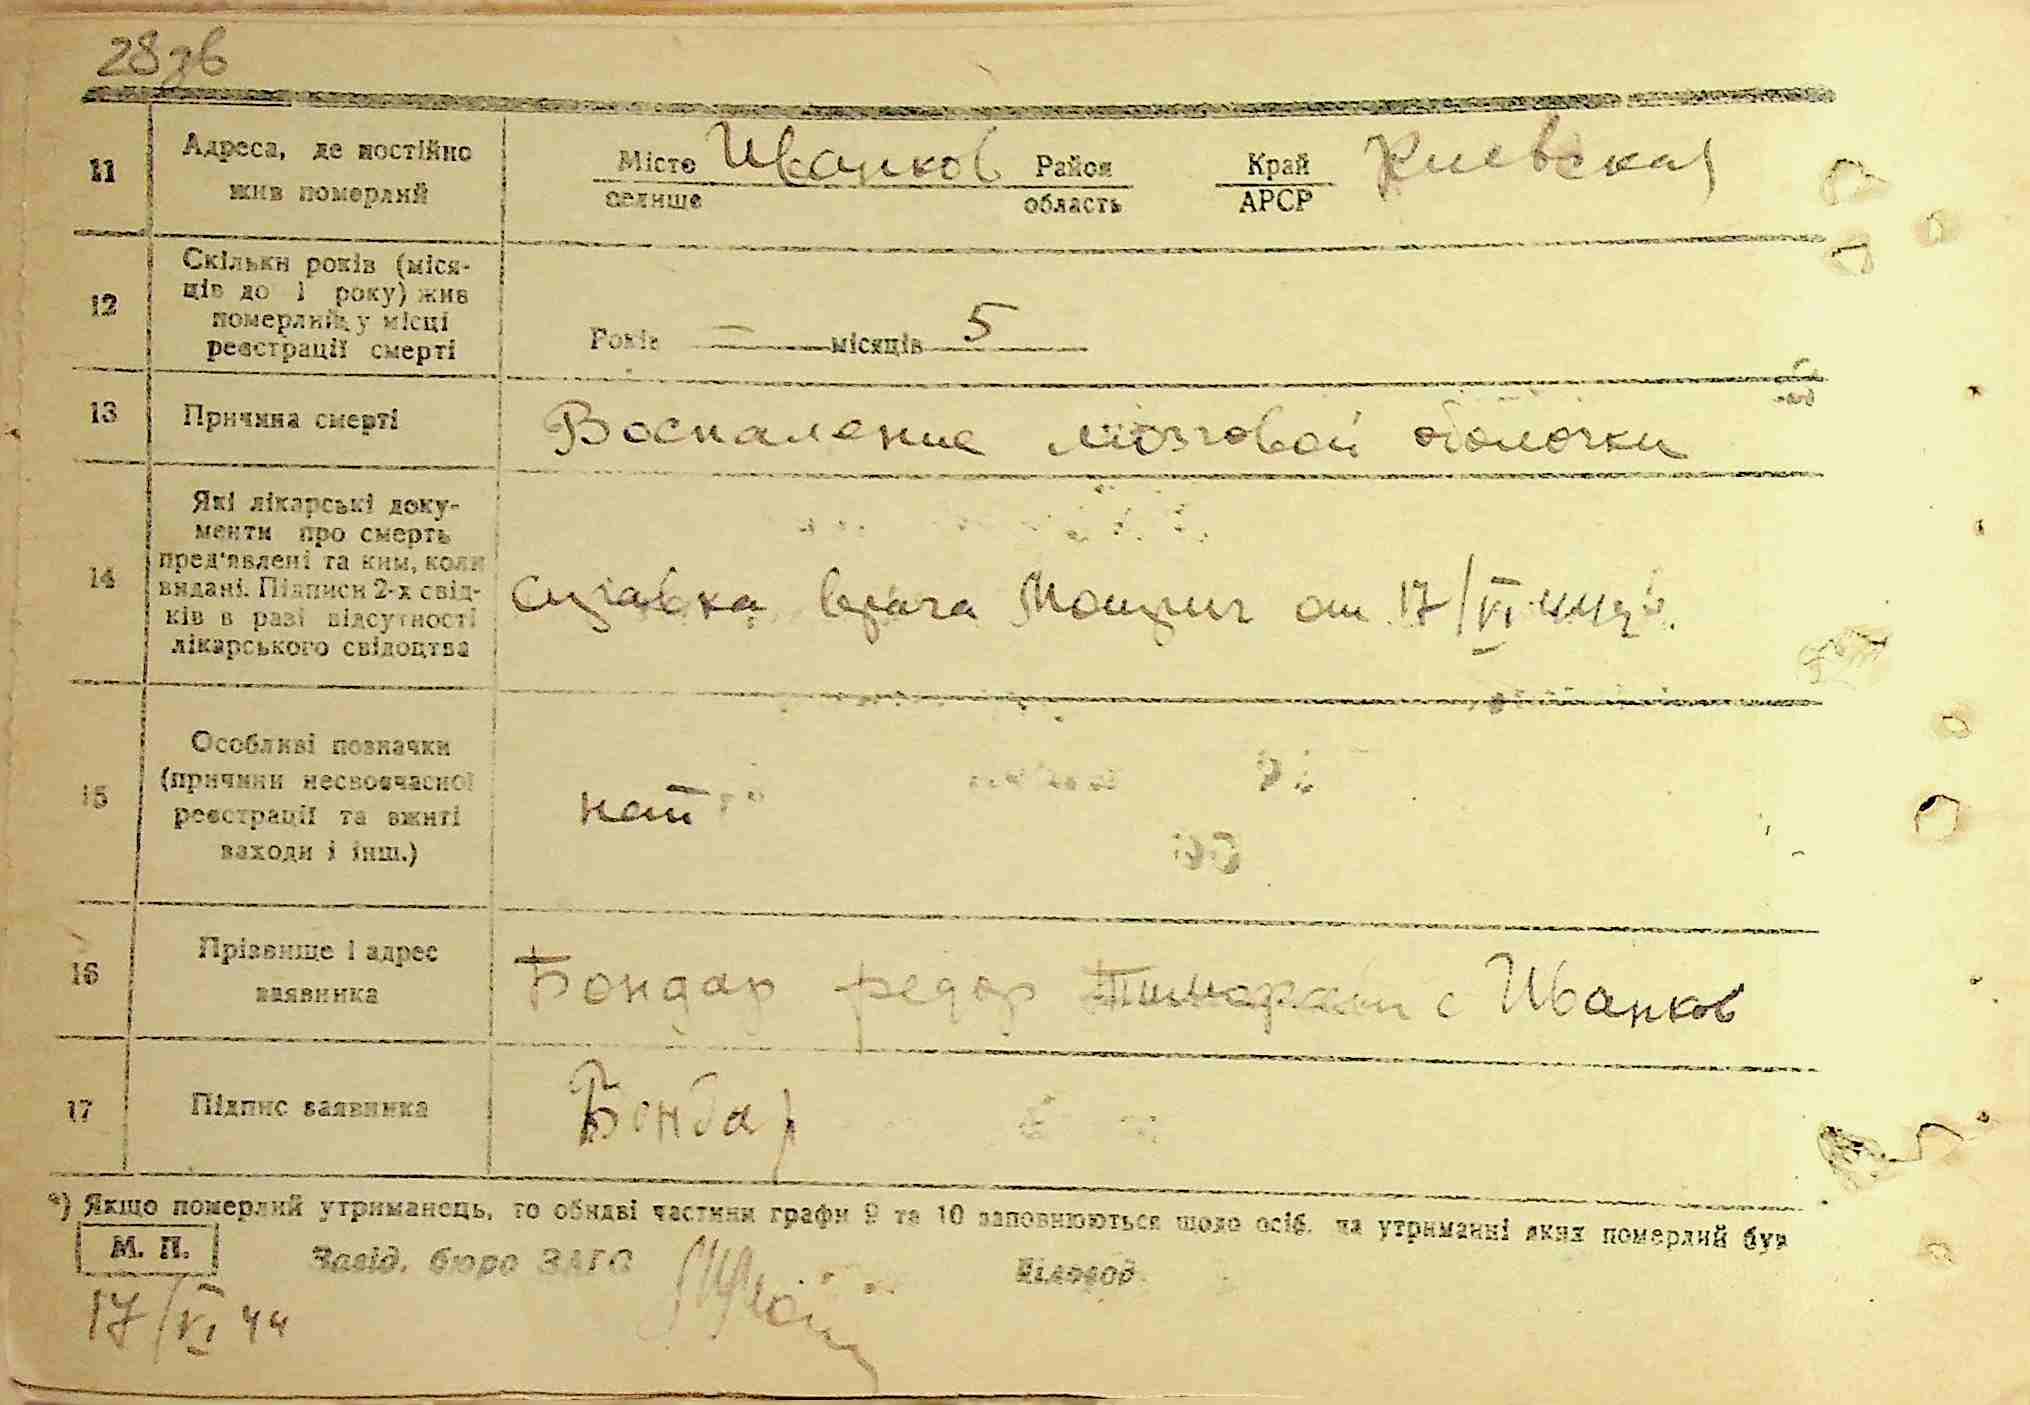 28 зв
11
Адреса, де постійно
жив померлий
Місто Иванков Район Край Киевская
селище область АРСР
12
Скільки років (міся-
ців до 1 року) жив
померлий у місці
реєстрації смерті
Років — місяців 5
13
Причина смерті
Воспаление мозговой оболочки
14
Які лікарські доку-
менти про смерть
пред'явлені та ким, коли
видані. Підписи 2-х свід-
ків в разі відсутності
лікарського свідоцтва
Справка врача от 17/VI 44 г.
15
Особливі позначки
(причини несвоєчасної
реєстрації та вжиті
заходи і інш.)
нет
16
Прізвище і адрес
заявника
Бондар Федор с Иванков
17
Підпис заявника
Бондар
*) Якщо померлий утриманець, то обидві частини графи 9 та 10 заповнюються щодо осіб, на утриманні яких померлий був
М. П.
Завід. бюро ЗАГС Діловод
17/VI 44